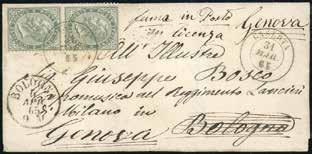 ferma in Posta
in licenza
Genova
CASERTA
31
MAR
65
All' Illustre
Giuseppe Bosco
Reggimento Lancieri
Milano in
Genova
Bologna
BOLOGNA
APR
65